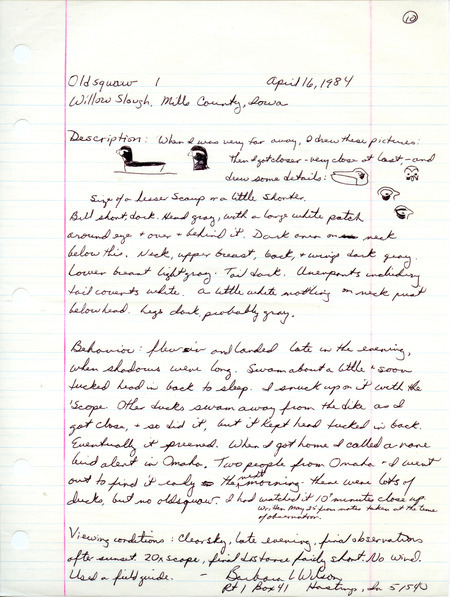 10
Oldsquaw 1 April 16, 1984
Willow Slough, Mills County, Iowa
Description: When I was very far away, I drew these pictures:
then I got closer - very close at last, - and
drew some details:
Size of a lesser Scaup or a little shorter.
Bill short, dark. Head gray, with a large white patch
around eye + over + behind it. Dark area on neck
below this. Neck, upper breast, back, + wings dark gray.
Lower breast light gray. Tail dark. Underparts including
tail coverts white. A little white mottling on neck just
below head. Legs dark probably gray.
Behavior: flew in and landed late in the evening,
when shadows were long. Swam about a little + soon
tucked head in back to sleep. I snuck up on it with the
'scope. Other ducks swam away from the dike as I
got close, + so did it, but it kept head tucked in back.
Eventually it preened. When I got home I called a rare
bird alert in Omaha. Two people from Omaha + I went
out to find it early the next morning - there were lots of
ducks, but no oldsquaw. I had watched it 10 minutes close up.
Written May 25 from notes taken at the time
of observation.
Viewing conditions: Clear sky, late evening, final observations
after sunset. 20x scope, final distance fairly short. No wind.
Used a field guide. - Barbara L Wilson
Rt 1 Box 41 Hastings, Ia 51540